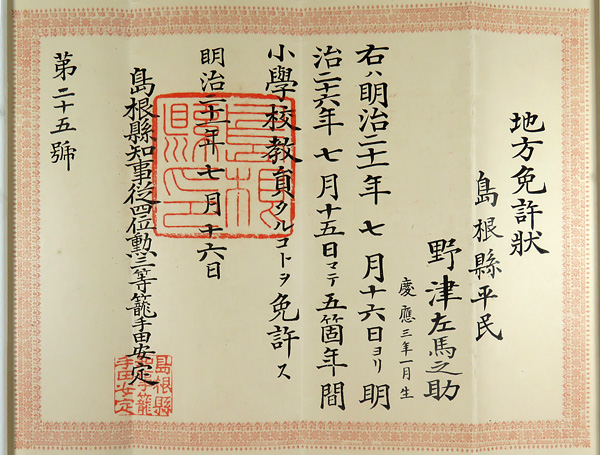 地方免許狀
島根縣平民
野津左馬之助
慶應三年一月生
右ハ明治二十一年七月十六日ヨリ明
治二十六年七月十五日マテ五箇年間
小學校教員タルコトヲ免許ス
明治二十一年七月十六日
島根縣知事從四位勲三等籠手田安定
第二十五號